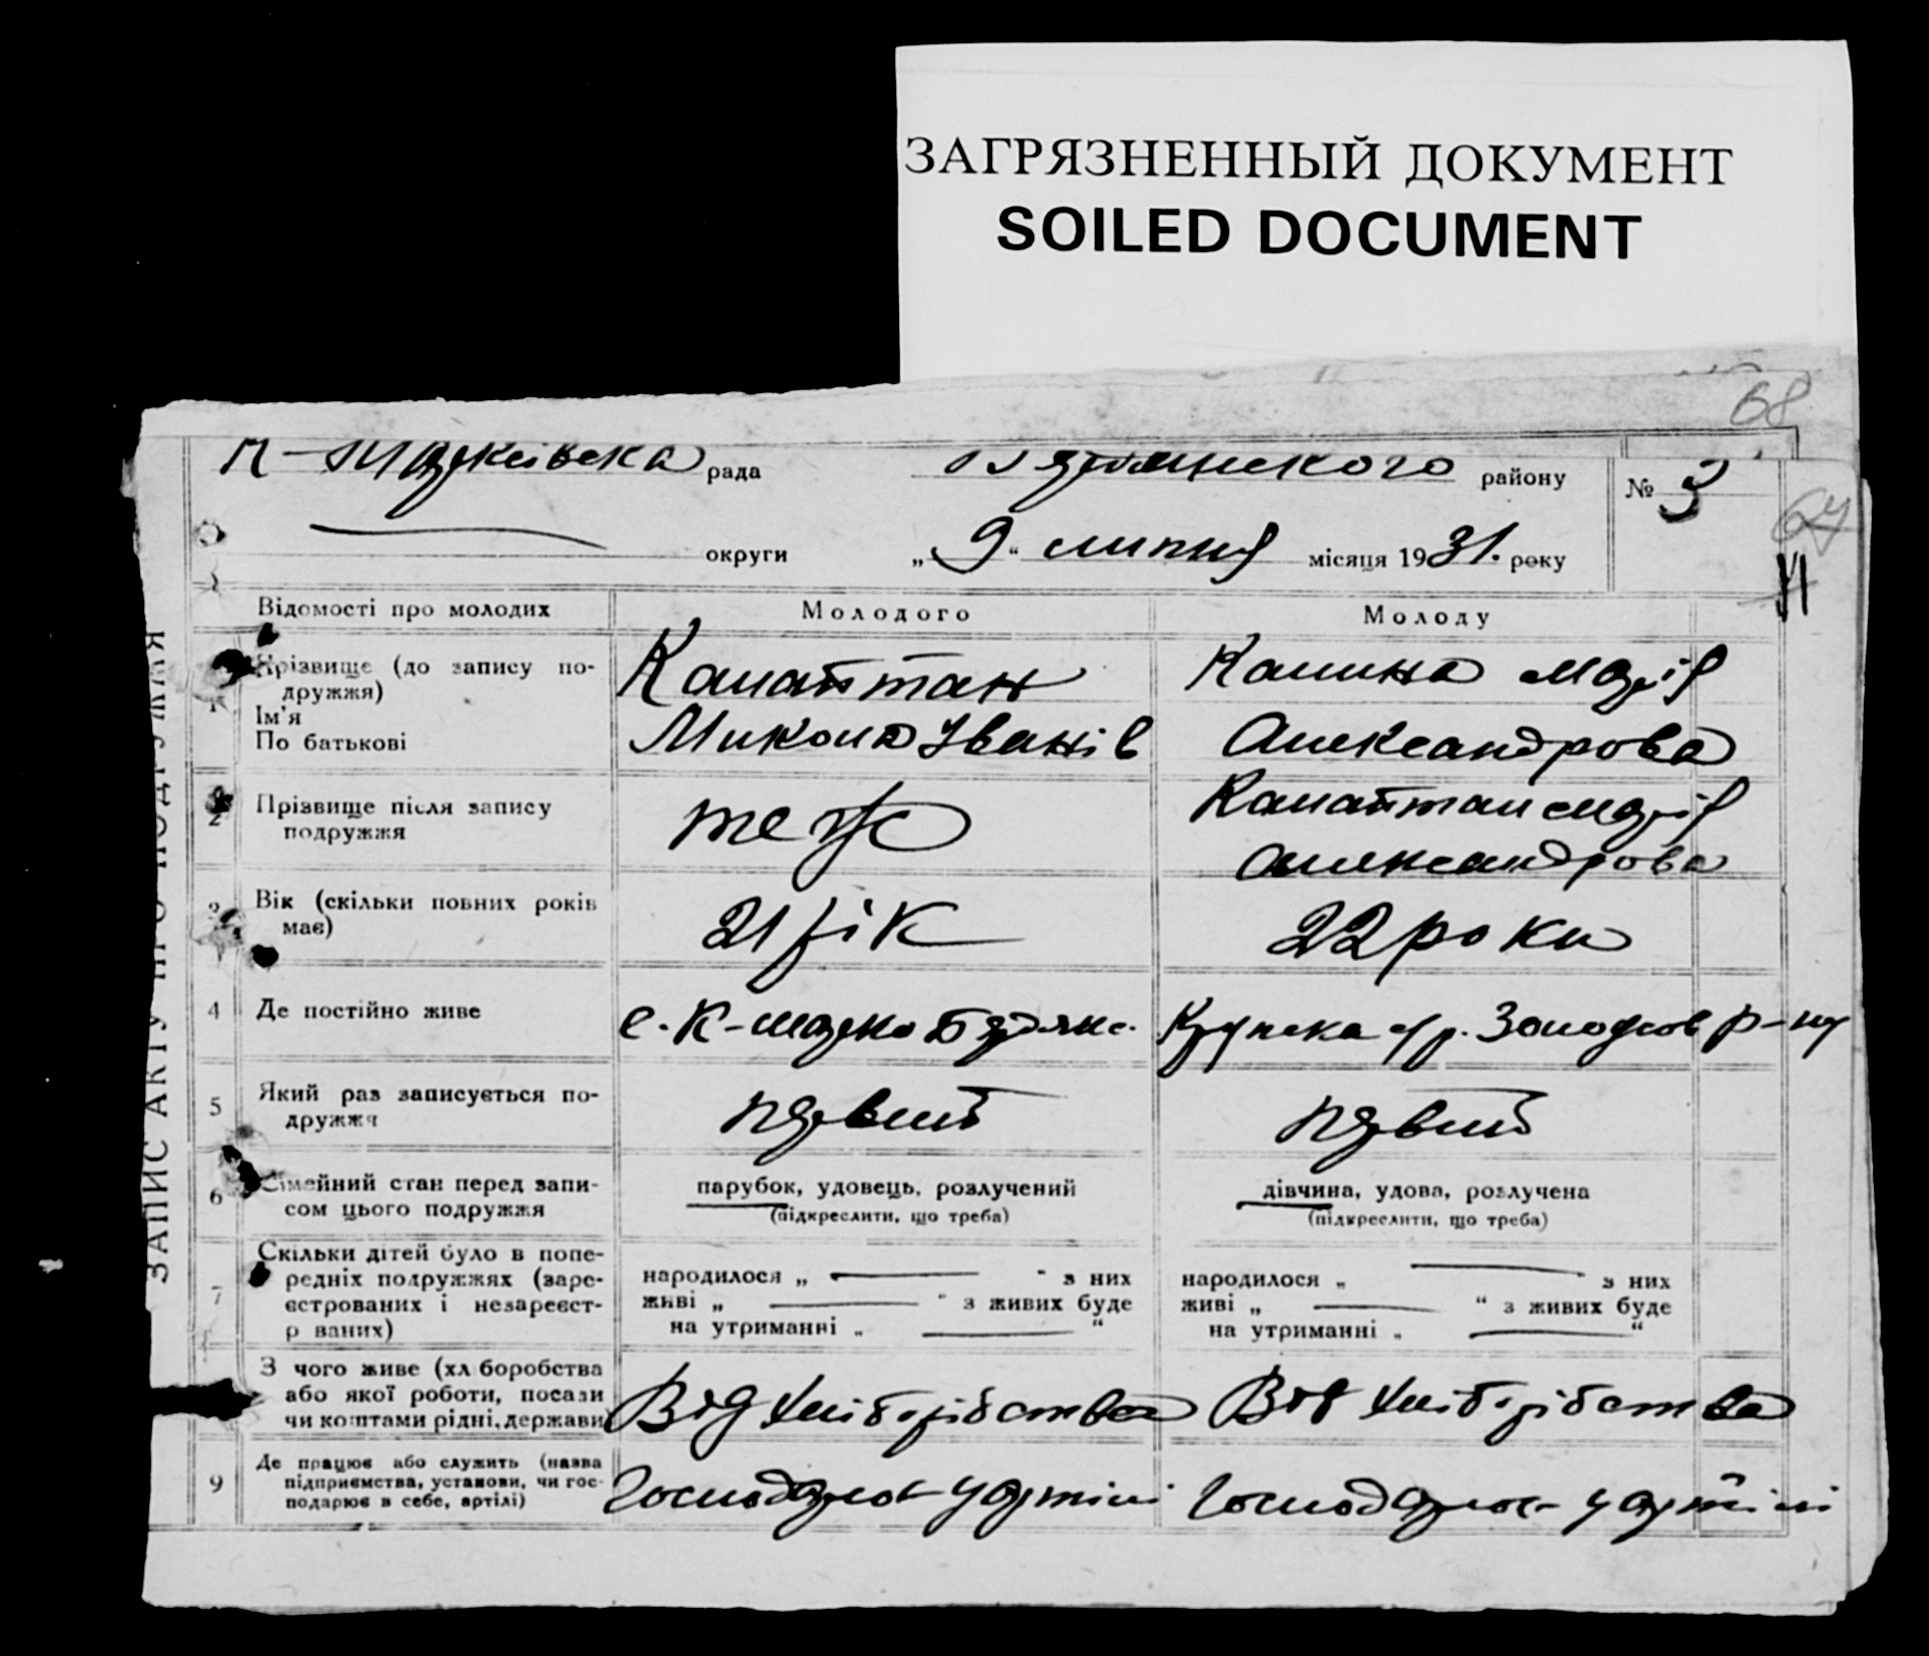 ЗАГРЯЗНЕННЫЙ ДОКУМЕНТ
SOILED DOCUMENT
68
рада району № 3
67
округи „9“ липня місяця 1931. року
VI
ЗАПИС АКТУ ПРО ПОДРУЖЖЯ
Відомості про молодих Молодого Молоду
1 Прізвище (до запису по-
дружжя)
Ім'я
По батькові
Калайтан
Микола Іванів
Калина Марія
Александрова
2 Прізвище після запису
подружжя
теж
Калайтан Марія
Александрова
3 Вік (скільки повних років
має)
21 рік
22 роки
4 Де постійно живе
5 Який раз записується по-
дружжя
первий
первий
6 Сімейний стан перед запи-
сом цього подружжя
парубок, удовець, розлучений
(підкреслити, що треба)
дівчина, удова, розлучена
(підкреслити, що треба)
7 Скільки дітей було в попе-
редніх подружжях (заре-
єстрованих і незареєст-
р ваних)
народилося „ “ з них
живі „ “ з живих буде
на утриманні „ “
народилося „ “ з них
живі „ “ з живих буде
на утриманні „ “
З чого живе (хл боробства
або якої роботи, посади
чи коштами рідні, держави
Від хліборобства
Від хліборобства
9 Де працює або служить (назва
підприємства, установи, чи гос-
подарює в себе, артілі)
у артілі
у артілі